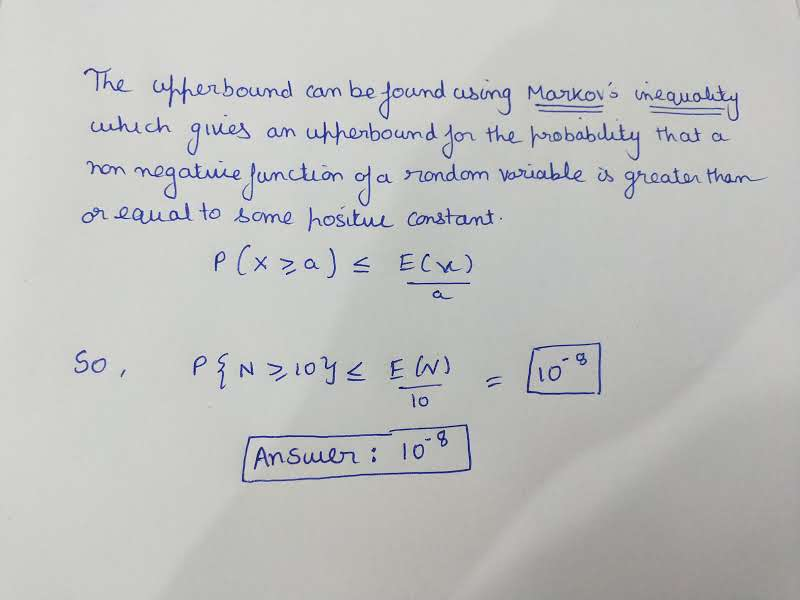 The upperbound can be found using Markov's inequality
which gives an upperbound for the probability that a
non negative function of a random variable is greater than
or equal to some positive constant.
P(X ≥ a) ≤ E(x)/a
So, P{N ≥ 10} ≤ E(N)/10 = 10⁻⁸
Answer : 10⁻⁸